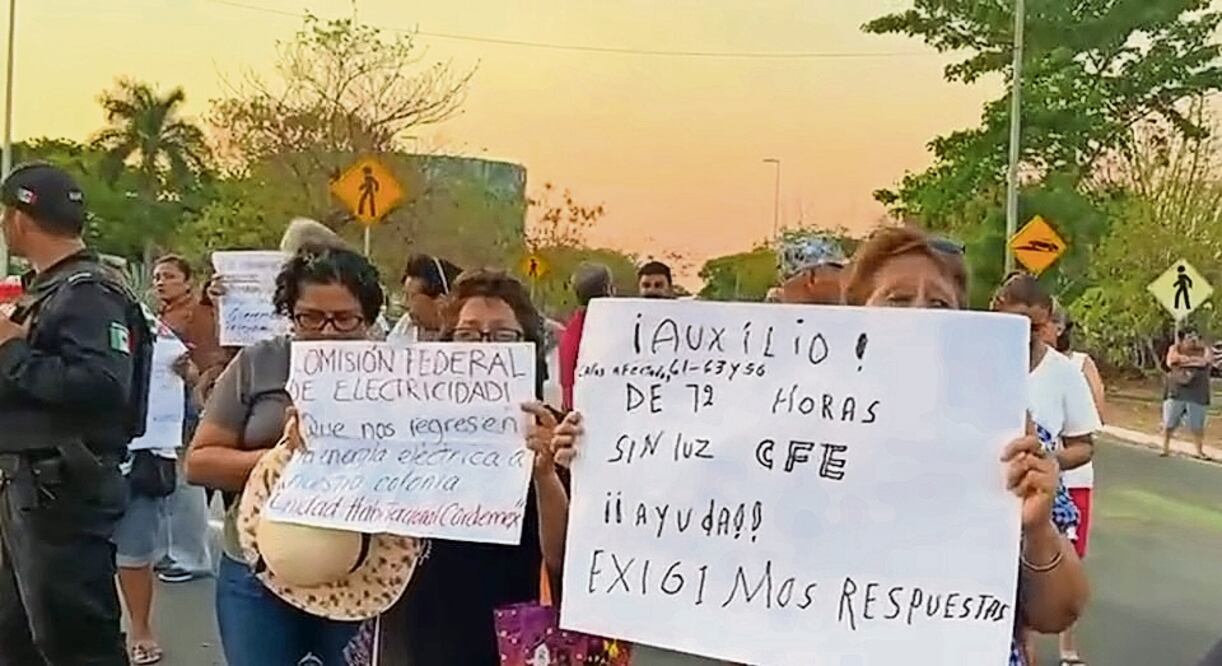 COMISIÓN FEDERAL
DE ELECTRICIDAD!
Que nos regresen
la energía eléctrica a
nuestra colonia
Unidad Habitacional Cordemex
¡AUXILIO!
61-63 y 56
DE 72 HORAS
SIN LUZ CFE
¡¡AYUDA!!
EXIGIMOS RESPUESTAS